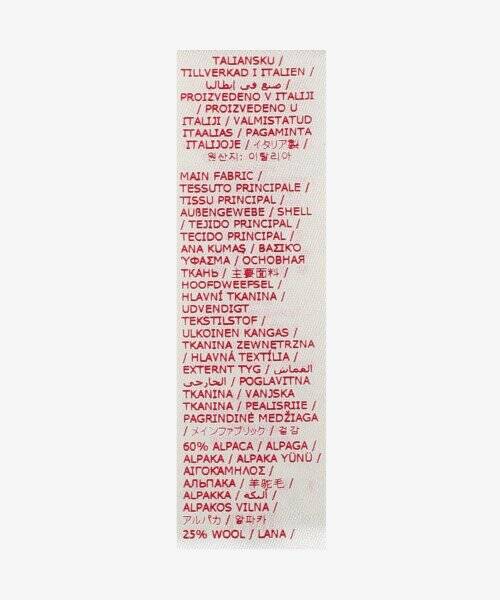 TALIANSKU /
TILLVERKAD I ITALIEN /
صنع في إيطاليا /
PROIZVEDENO V ITALIJI
/ PROIZVEDENO U
ITALIJI / VALMISTATUD
ITAALIAS / PAGAMINTA
ITALIJOJE / イタリア製 /
원산지: 이탈리아
MAIN FABRIC /
TESSUTO PRINCIPALE /
TISSU PRINCIPAL /
AUßENGEWEBE / SHELL
/ TEJIDO PRINCIPAL /
TECIDO PRINCIPAL /
ANA KUMAŞ / ΒΑΣΙΚΌ
ΎΦΑΣΜΑ / ОСНОВНАЯ
ТКАНЬ / 主要面料 /
HOOFDWEEFSEL /
HLAVNÍ TKANINA /
UDVENDIGT
TEKSTILSTOF /
ULKOINEN KANGAS /
TKANINA ZEWNĘTRZNA
/ HLAVNÁ TEXTÍLIA /
EXTERNT TYG / القماش
الخارجي / POGLAVITNA
TKANINA / VANJSKA
TKANINA / PEALISRIIE /
PAGRINDINĖ MEDŽIAGA
/ メインファブリック / 겉감
60% ALPACA / ALPAGA /
ALPAKA / ALPAKA YÜNÜ /
ΑΙΓΟΚΆΜΗΛΟΣ /
АЛЬПАКА / 羊驼毛 /
ALPAKKA / ألبكة /
ALPAKOS VILNA /
アルパカ / 알파카
25% WOOL / LANA /